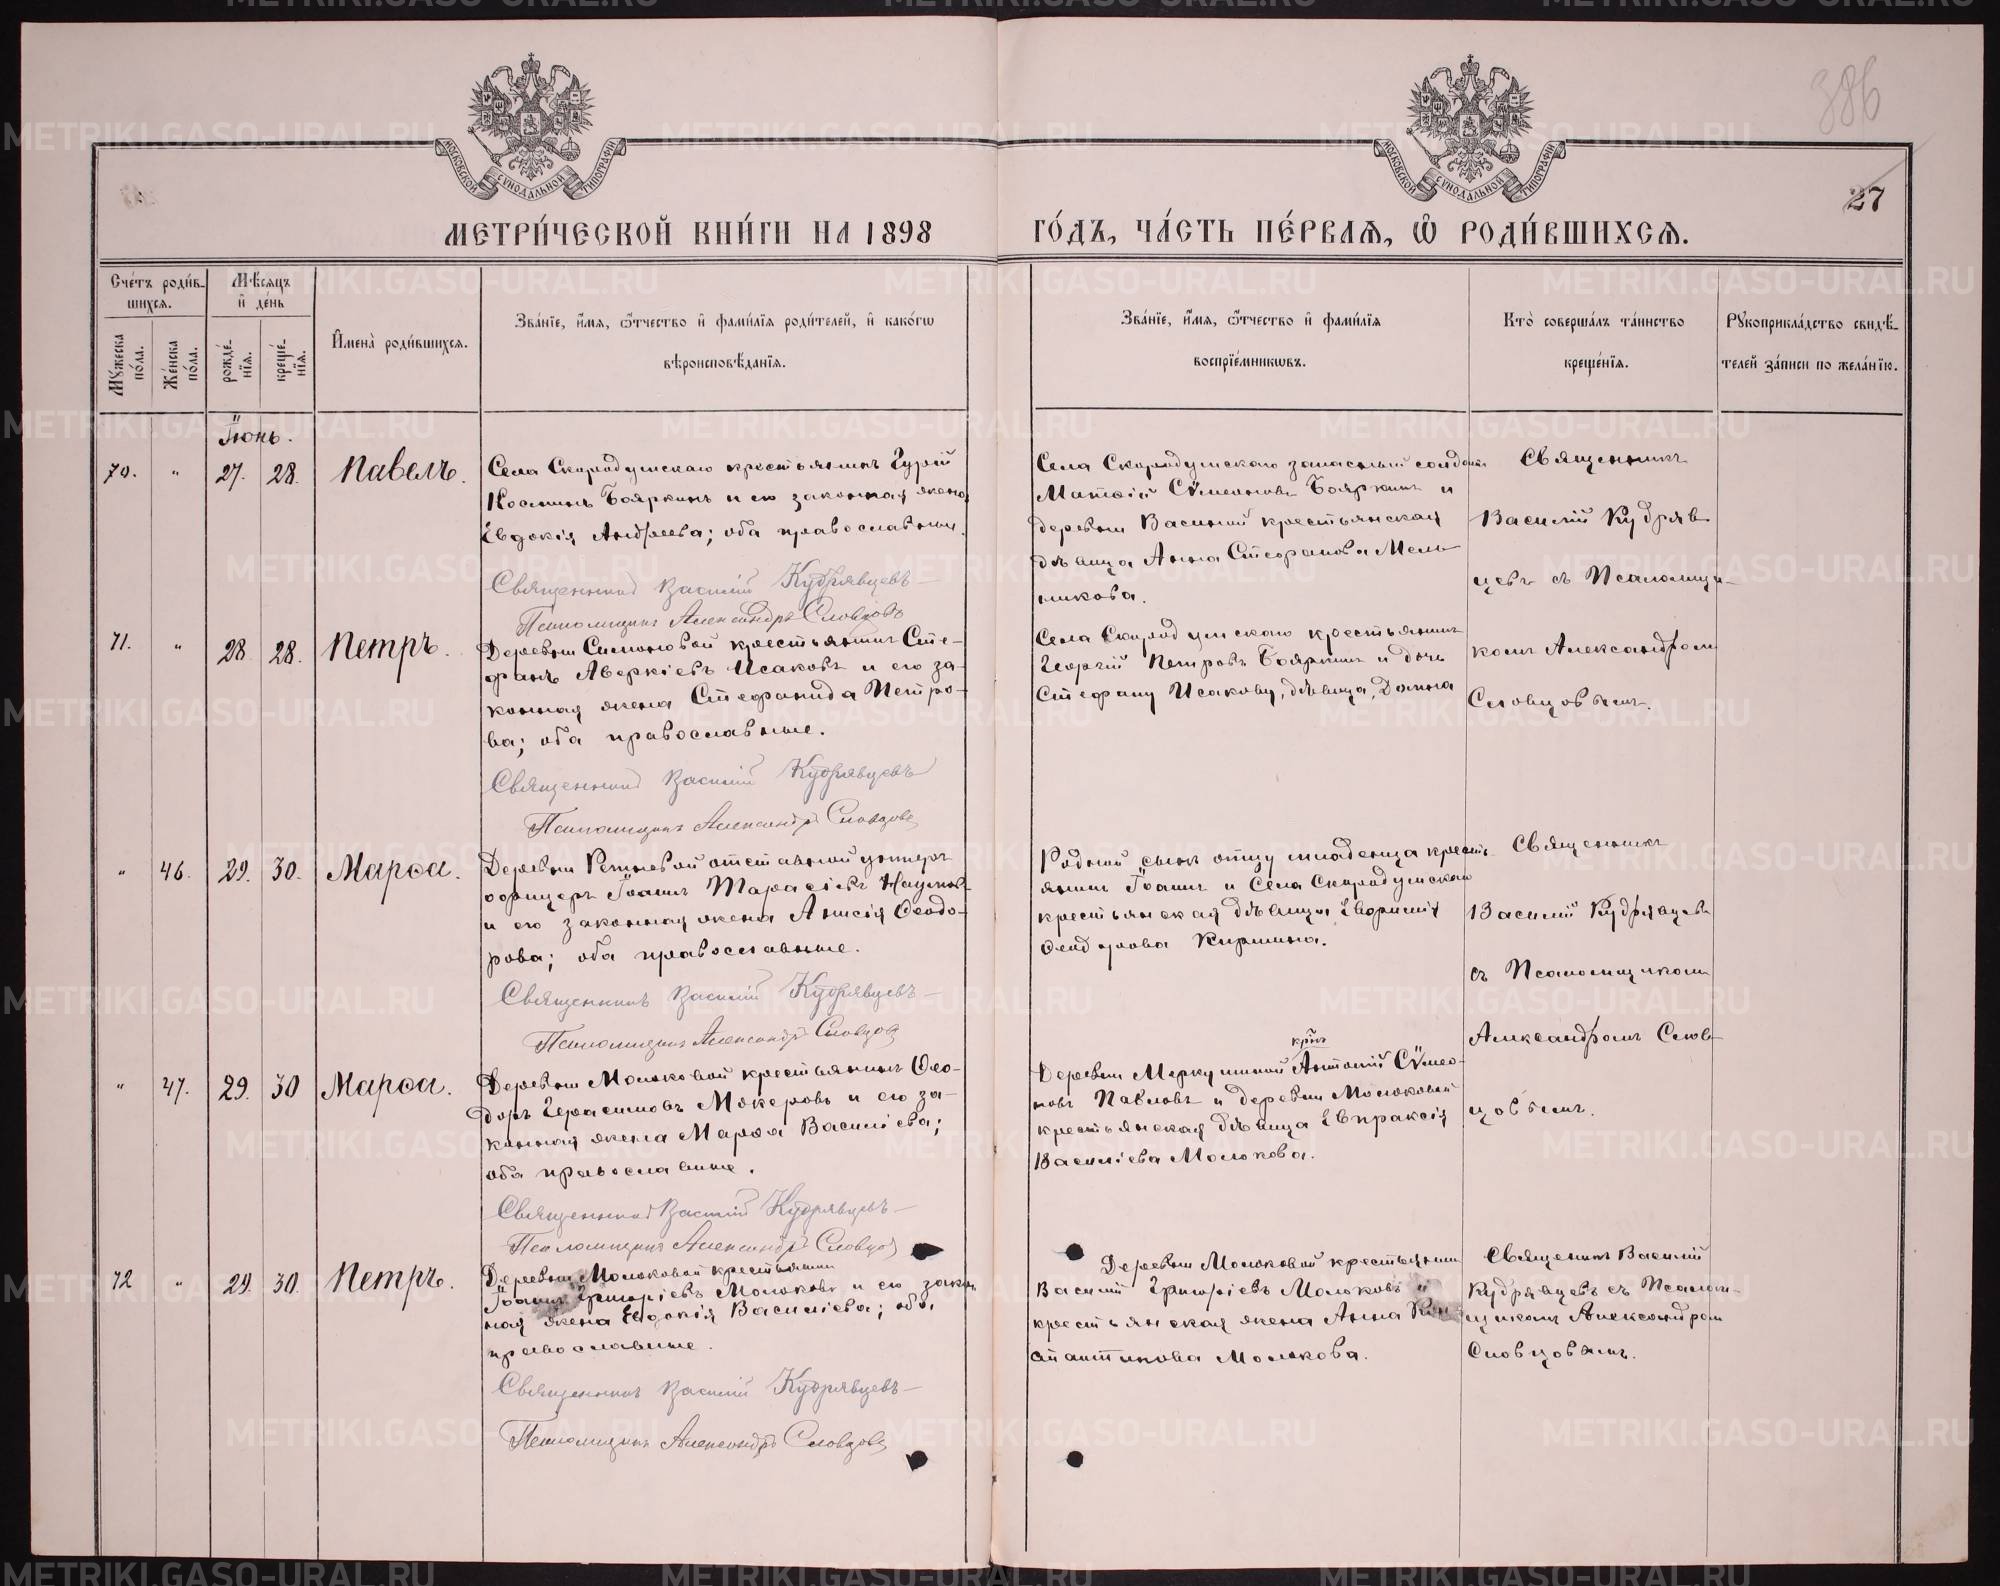 386
27
МОСКОВСКОЙ СѴНОДАЛЬНОЙ ТИПОГРАФІИ
МОСКОВСКОЙ СѴНОДАЛЬНОЙ ТИПОГРАФІИ
МЕТРИ́ЧЕСКОЙ КНИ́ГИ НА 1898 ГО́ДЪ, ЧА́СТЬ ПЕ́РВАѦ, Ѡ РОДИ́ВШИХСѦ.
Сче́тъ роди́в-
шихсѧ.
Мꙋжеска по́ла.
Же́нска по́ла.
Мѣ́сѧцъ
и҆ де́нь
рожде́нїѧ.
креще́нїѧ.
И҆мена̀ роди́вшихсѧ.
Зва́нїе, и҆́мѧ, ѻ҆́тчество и҆ фами́лїѧ роди́телей, и҆ како́гѡ
вѣроисповѣ́данїѧ.
Зва́нїе, и҆́мѧ, ѻ҆́тчество и҆ фами́лїѧ
воспрїе́мникѡвъ.
Кто̀ соверша́лъ та́инство
креще́нїѧ.
Рꙋкоприкла́дство свидѣ́-
телей за́писи по жела́нїю.
Іюнь.
70. " 27. 28. Павелъ.
Села Скородумскаго крестьянинъ Гурій
Косминъ Бояркинъ и его законная жена
Евдокія Андреева; оба православные.
Священникъ Василій Кудрявцевъ
Псаломщикъ Александръ Словцовъ
Села Скородумскаго запасный солдатъ
Матѳій Сѷмеоновъ Бояркинъ и
деревни крестьянская
дѣвица Анна Стефанова Мель-
никова.
Священникъ
Василій Кудряв-
цевъ съ Псаломщи-
комъ Александромъ
Словцовымъ.
71. " 28. 28. Петръ.
Деревни Симоновой крестьянинъ Сте-
фанъ Аверкіевъ Исаковъ и его за-
конная жена Стефанида Петро-
ва; оба православные.
Священникъ Василій Кудрявцевъ
Псаломщикъ Александръ Словцовъ
Села Скородумскаго крестьянинъ
Георгій Петровъ Бояркинъ и дочь
Стефану Исакову, дѣвица, Домна
" 46. 29. 30. Марѳа.
Деревни Ретневой отставной унтеръ
офицеръ Іоаннъ Тарасіевъ Наумовъ
и его законная жена Анисія Ѳеодо-
рова; оба православные.
Священникъ Василій Кудрявцевъ
Псаломщикъ Александръ Словцовъ
Родной сынъ отцу младенца кресть-
янинъ Іоаннъ и Села Скородумскаго
крестьянская дѣвица
Ѳеодорова
Священникъ
Василій Кудрявцевъ
съ Псаломщикомъ
Александромъ Слов-
цовымъ.
" 47. 29. 30 Марѳа.
Деревни Молоковой крестьянинъ Ѳео-
доръ Герасимовъ Мокеровъ и его за-
конная жена Марѳа Василіева;
оба православные.
Священникъ Василій Кудрявцевъ
Псаломщикъ Александръ Словцовъ
крнъ
Деревни Меркушиной Антоній Сѷмео-
новъ Павловъ и деревни Молоковой
крестьянская дѣвица Евпраксія
Василіева Молокова.
72 " 29. 30. Петръ.
Деревни Молоковой крестьянинъ
Іоаннъ Григоріевъ Молоковъ и его закон-
ная жена Евдокія Василіева; оба
православные.
Священникъ Василій Кудрявцевъ
Псаломщикъ Александръ Словцовъ
Деревни Молоковой крестьянинъ
Василій Григоріевъ Молоковъ и
крестьянская жена Анна Кон-
стантинова Молокова.
Священникъ Василій
Кудрявцевъ съ Псалом-
щикомъ Александромъ
Словцовымъ.
METRIKI.GASO-URAL.RU